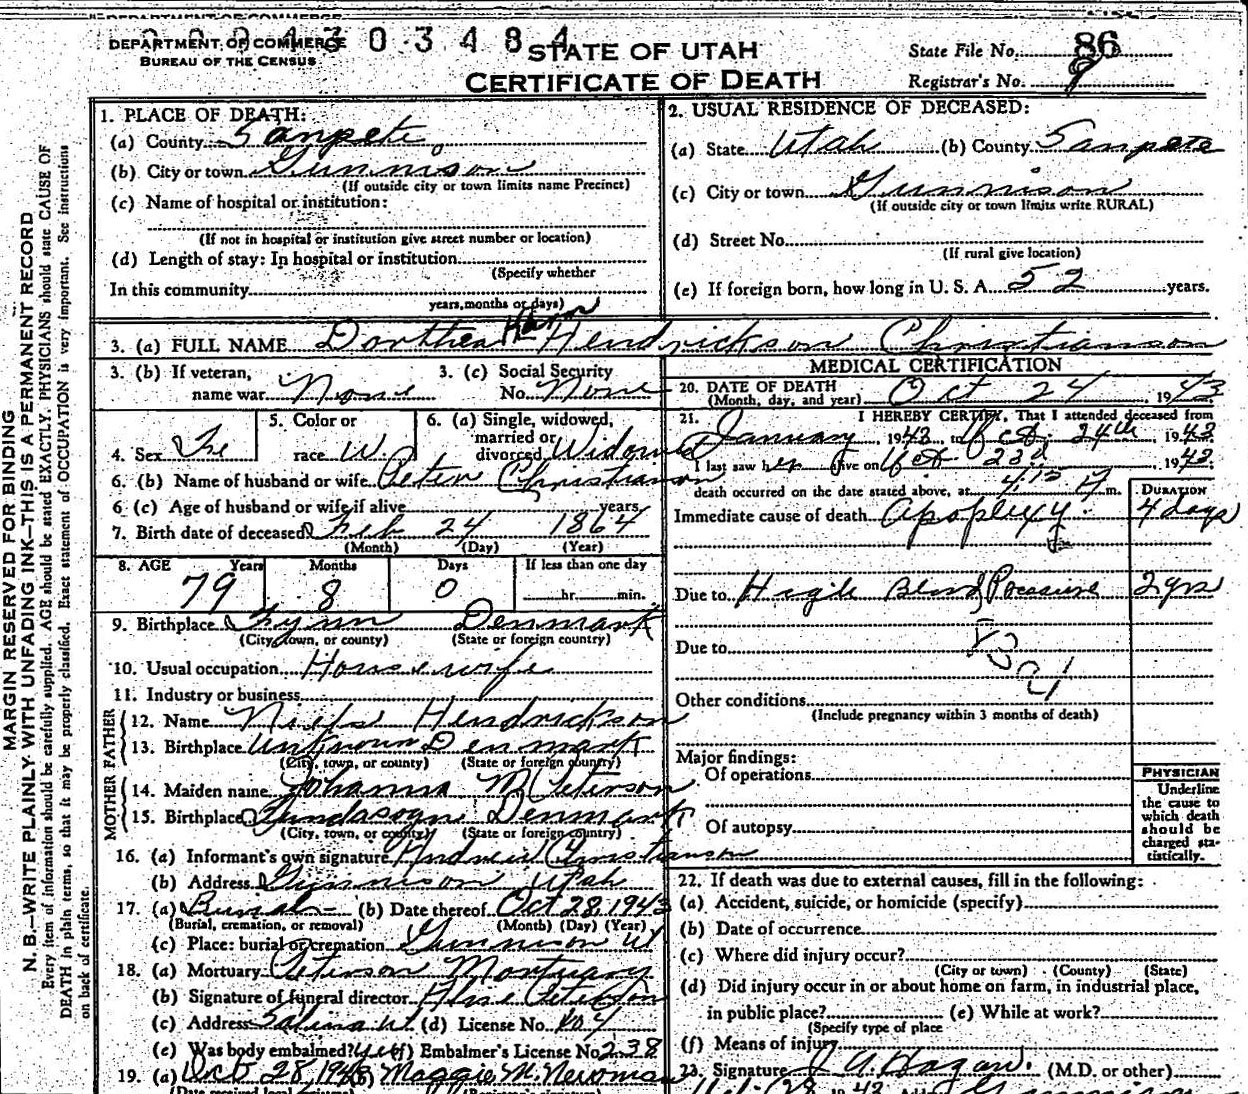 DEPARTMENT OF COMMERCE
BUREAU OF THE CENSUS
0 3 4 8 4
STATE OF UTAH
CERTIFICATE OF DEATH
State File No. 86
Registrar's No. 9
MARGIN RESERVED FOR BINDING
N. B.—WRITE PLAINLY WITH UNFADING INK—THIS IS A PERMANENT RECORD
Every item of information should be carefully supplied. AGE should be stated EXACTLY. PHYSICIANS should state CAUSE OF
DEATH in plain terms, so that it may be properly classified. Exact statement of OCCUPATION is very important. See instructions
on back of certificate.
1. PLACE OF DEATH:
(a) County Sanpete
(b) City or town Gunnison
(If outside city or town limits name Precinct)
(c) Name of hospital or institution:
(If not in hospital or institution give street number or location)
(d) Length of stay: In hospital or institution
(Specify whether
In this community
years, months or days)
2. USUAL RESIDENCE OF DECEASED:
(a) State Utah (b) County Sanpete
(c) City or town Gunnison
(If outside city or town limits write RURAL)
(d) Street No.
(If rural give location)
(e) If foreign born, how long in U. S. A. 52 years.
3. (a) FULL NAME Dorthea Karn Hendrickson Christianson
3. (b) If veteran, name war None
3. (c) Social Security No. None
4. Sex Fe
5. Color or race W.
6. (a) Single, widowed, married or divorced Widowed
6. (b) Name of husband or wife Peter Christianson
6 (c) Age of husband or wife if alive years
7. Birth date of deceased Feb 24 1864
(Month) (Day) (Year)
8. AGE Years Months Days If less than one day
79 8 0 hr. min.
9. Birthplace Fynn Denmark
(City, town, or county) (State or foreign country)
10. Usual occupation Housewife
11. Industry or business
FATHER
12. Name Niels Hendrickson
13. Birthplace Unknown Denmark
(City, town, or county) (State or foreign country)
MOTHER
14. Maiden name Johanna M Peterson
15. Birthplace Denmark
(City, town, or county) (State or foreign country)
16. (a) Informant's own signature Andrew Christianson
(b) Address Gunnison Utah
17. (a) Burial (b) Date thereof Oct 28, 1943
(Burial, cremation, or removal) (Month) (Day) (Year)
(c) Place: burial or cremation Gunnison Ut
18. (a) Mortuary Peterson Mortuary
(b) Signature of funeral director Peterson
(c) Address Salina Ut (d) License No. 104
(e) Was body embalmed? Yes (f) Embalmer's License No. 238
19. (a) Oct 28, 1943 (b) Maggie M. Newman
MEDICAL CERTIFICATION
20. DATE OF DEATH Oct 24 1943
(Month, day, and year)
21. I HEREBY CERTIFY, That I attended deceased from
January, 1943 to Oct. 24th 1943
I last saw her alive on Oct 23d, 1943.
death occurred on the date stated above, at 4:15 m.
DURATION
Immediate cause of death Apoplexy 4 days
Due to High Blood Pressure 2 yrs
Due to
Other conditions
(Include pregnancy within 3 months of death)
Major findings:
Of operations
Of autopsy
PHYSICIAN
Underline
the cause to
which death
should be
charged sta-
tistically.
22. If death was due to external causes, fill in the following:
(a) Accident, suicide, or homicide (specify)
(b) Date of occurrence
(c) Where did injury occur?
(City or town) (County) (State)
(d) Did injury occur in or about home on farm, in industrial place,
in public place? (e) While at work?
(Specify type of place
(f) Means of injury
23. Signature J A Hagan. (M.D. or other)